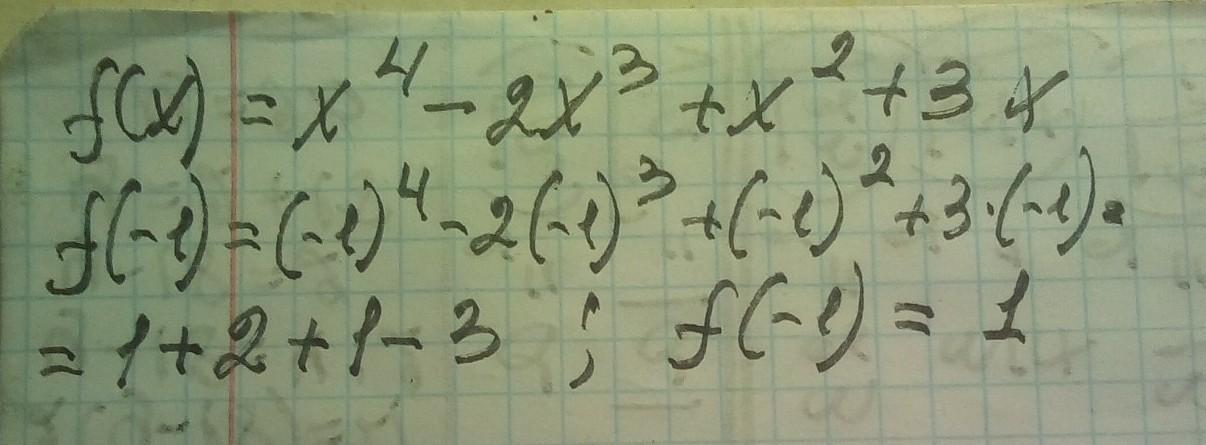 f(x) = x⁴ - 2x³ + x² + 3x
f(-1) = (-1)⁴ - 2(-1)³ + (-1)² + 3·(-1) =
= 1 + 2 + 1 - 3 ; f(-1) = 1